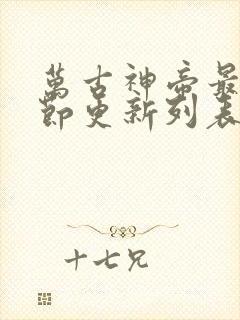 萬古神帝最
節更新列表
十七兄